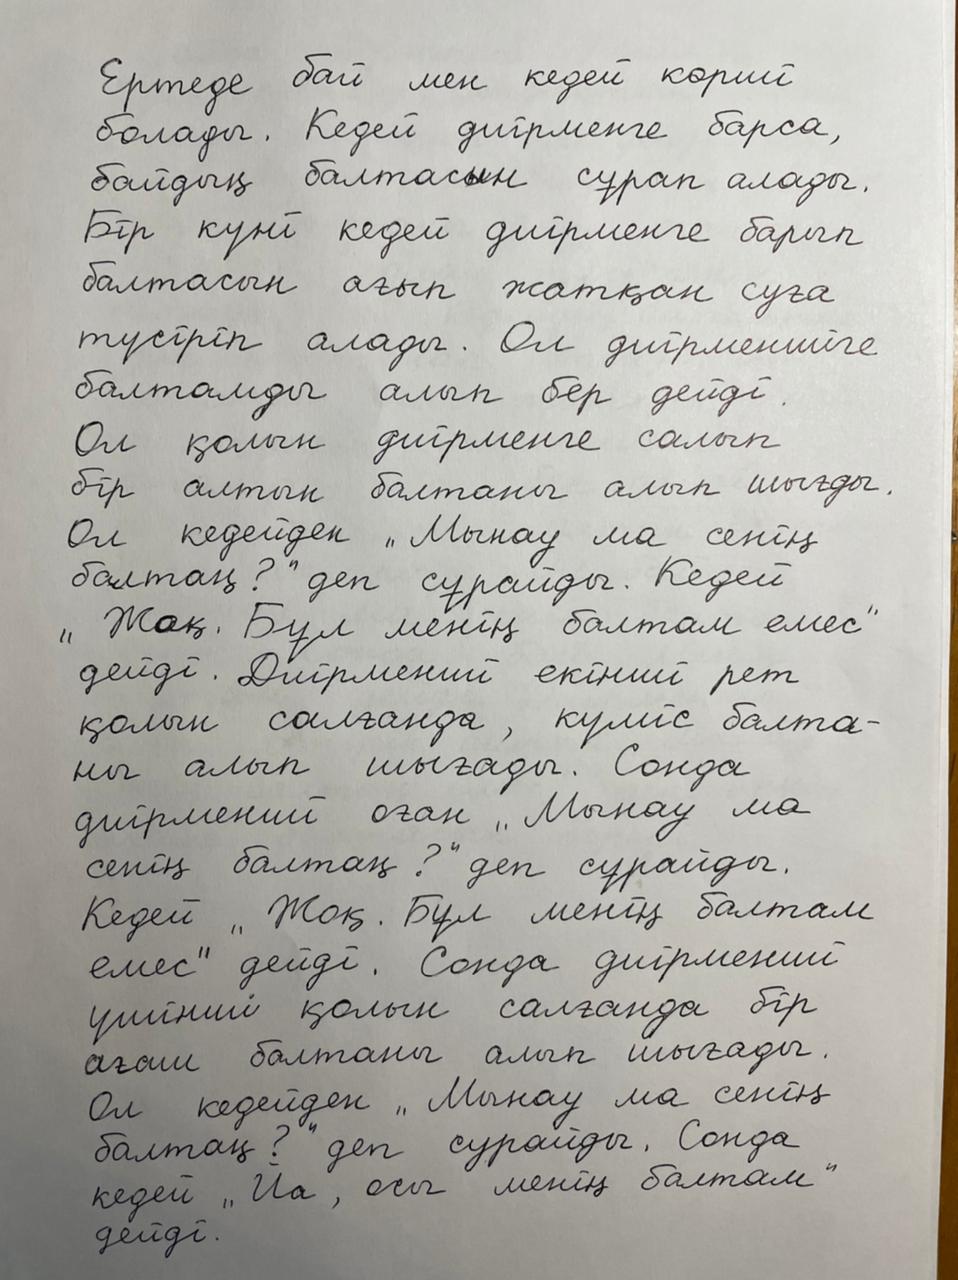 Ертеде бай мен кедей көрші
болады. Кедей диірменге барса,
байдың балтасын сұрап алады.
Бір күні кедей диірменге барып
балтасын ағып жатқан суға
түсіріп алады. Ол диірменшіге
балтамды алып бер дейді.
Ол қолын диірменге салып
бір алтын балтаны алып шығды.
Ол кедейден „Мынау ма сенің
балтаң?" деп сұрайды. Кедей
„Жоқ. Бұл менің балтам емес"
дейді. Диірменші екінші рет
қолын салғанда, күміс балта-
ны алып шығады. Сонда
диірменші оған „Мынау ма
сенің балтаң?" деп сұрайды.
Кедей „Жоқ. Бұл менің балтам
емес" дейді. Сонда диірменші
үшінші қолын салғанда бір
ағаш балтаны алып шығады.
Ол кедейден „Мынау ма сенің
балтаң?" деп сұрайды. Сонда
кедей „Йа, осы менің балтам"
дейді.